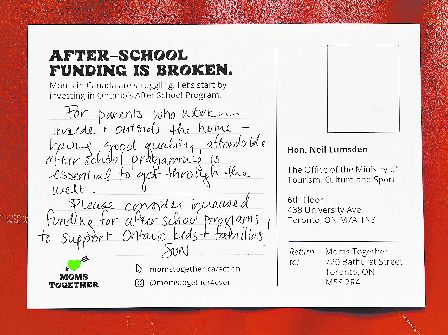 AFTER-SCHOOL
FUNDING IS BROKEN.
Moms in Canada are struggling. Let's start by
investing in Ontario's After School Program.
For parents who work
inside + outside the home –
having good quality, affordable
after school programme is
essential to get through the
week.
Please consider increased
funding for after school programs,
to support Ontario kids + families
MOMS
TOGETHER
momstogether.ca/action
@momstogether4ever
Hon. Neil Lumsden
The Office of the Ministry of
Tourism, Culture and Sport
6th Floor
438 University Ave
Toronto, ON M7A 1N3
Return
to:
Moms Together
720 Bathurst Street
Toronto, ON
M5S 2R4